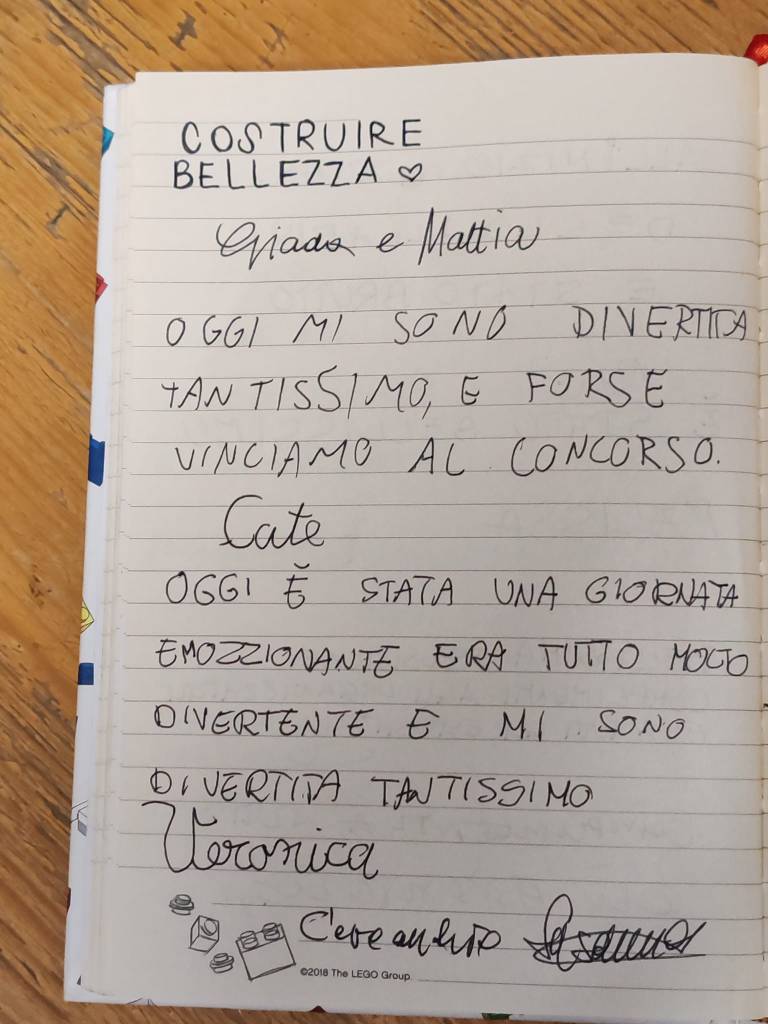 COSTRUIRE
BELLEZZA ♡
Giada e Mattia
OGGI MI SONO DIVERTITA
TANTISSIMO, E FORSE
VINCIAMO AL CONCORSO.
Cate
OGGI È STATA UNA GIORNATA
EMOZZIONANTE ERA TUTTO MOLTO
DIVERTENTE E MI SONO
DIVERTITA TANTISSIMO
Veronica
C'ero anch'io
©2018 The LEGO Group.